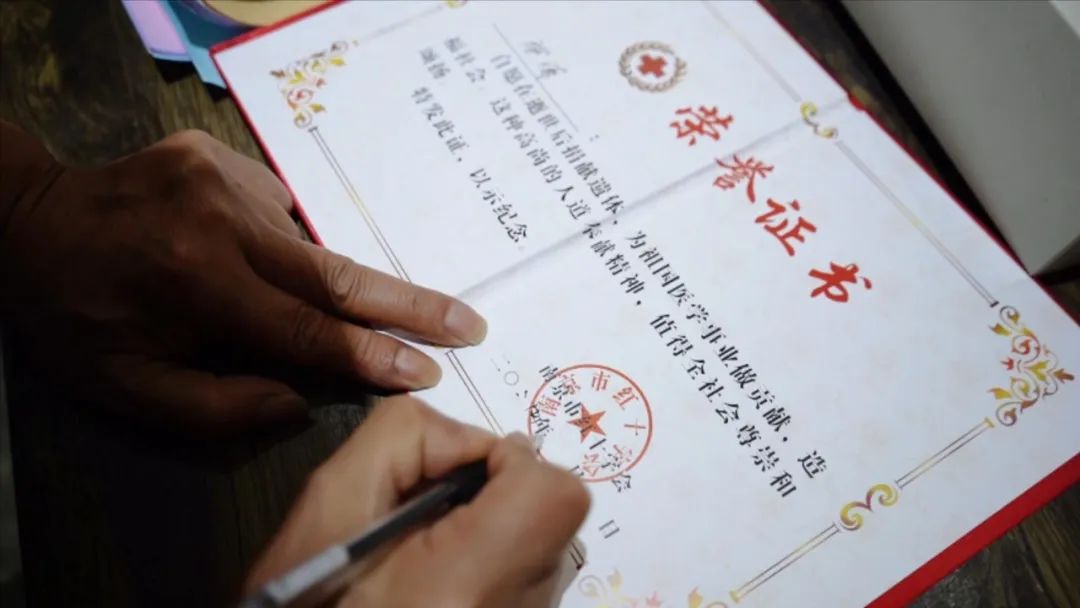 荣誉证书
:
自愿在逝世后捐献遗体，为祖国医学事业做贡献，造
福社会。这种高尚的人道奉献精神，值得全社会尊崇和
颂扬。
特发此证，以示纪念。
南京市红十字会
二〇 年 日